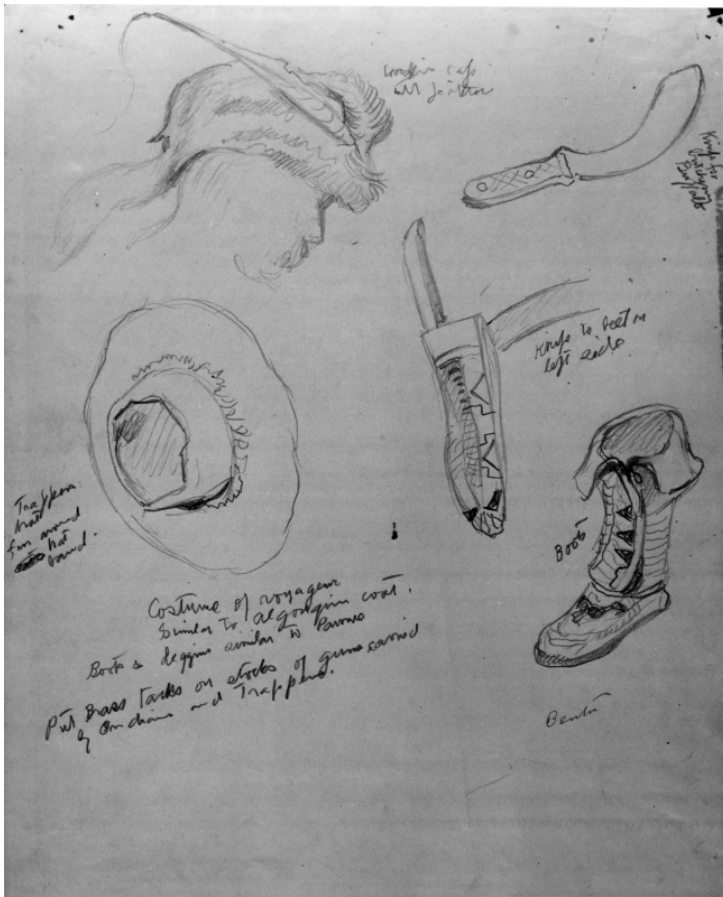 cap
Knife for
butchering
Buffalo
Knife to belt on
left side
Trappers
hat
fur around
hat
band.
Boots
Costume of voyageur
Similar to algonquin coat.
Boots & leggins similar to Pawnee
Put Brass Tacks on stocks of guns carried
by Indians and Trappers.